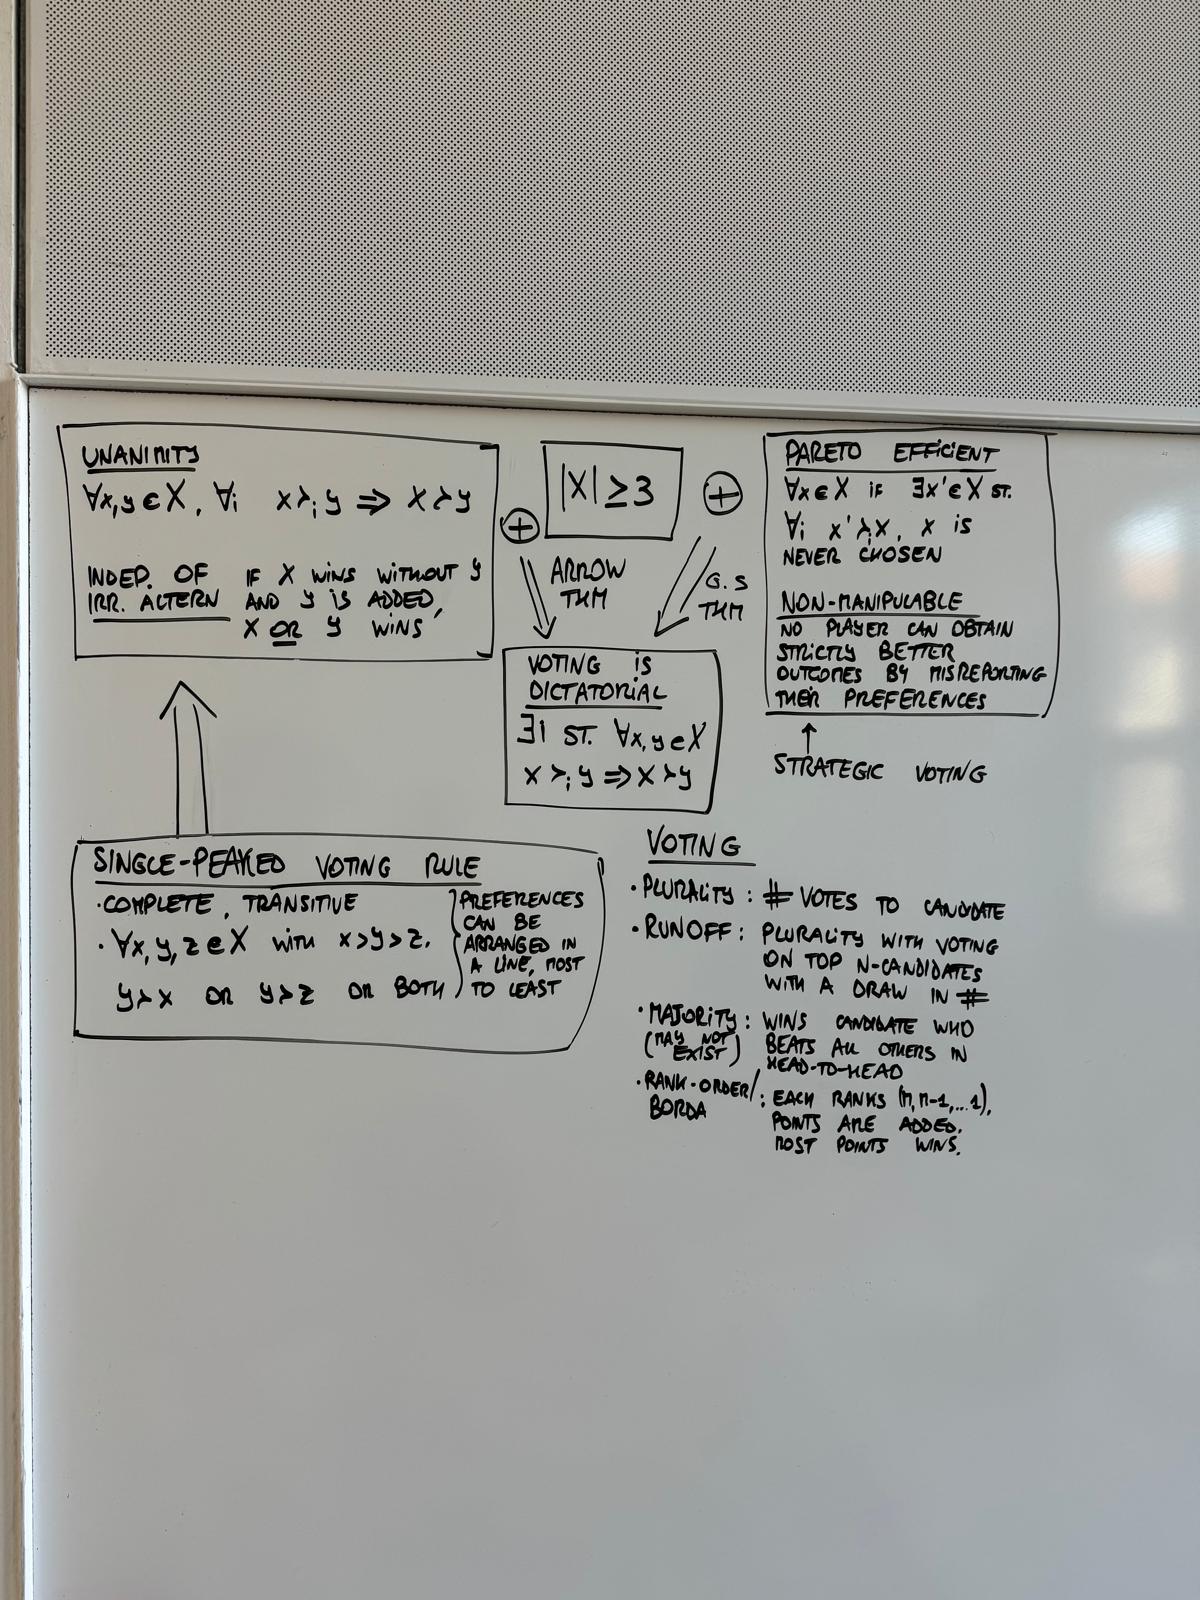 UNANIMITY
∀x,y ∈ X, ∀i x ≻ᵢ y ⇒ x ≻ y
INDEP. OF IF X WINS WITHOUT Y
IRR. ALTERN AND Y IS ADDED,
X OR Y WINS
|X| ≥ 3
⊕
⊕
ARROW
THM
G.S
THM
VOTING IS
DICTATORIAL
∃i ST. ∀x,y ∈ X
x ≻ᵢ y ⇒ x ≻ y
PARETO EFFICIENT
∀x ∈ X IF ∃x' ∈ X ST.
∀i x' ≻ᵢ x, x IS
NEVER CHOSEN
NON-MANIPULABLE
NO PLAYER CAN OBTAIN
STRICTLY BETTER
OUTCOMES BY MISREPORTING
THEIR PREFERENCES
STRATEGIC VOTING
SINGLE-PEAKED VOTING RULE
· COMPLETE, TRANSITIVE
· ∀x,y,z ∈ X WITH x > y > z.
y ≻ x OR y ≻ z OR BOTH
PREFERENCES
CAN BE
ARRANGED IN
A LINE, MOST
TO LEAST
VOTING
· PLURALITY : # VOTES TO CANDIDATE
· RUNOFF : PLURALITY WITH VOTING
ON TOP N-CANDIDATES
WITH A DRAW IN #
· MAJORITY : WINS CANDIDATE WHO
(MAY NOT BEATS ALL OTHERS IN
EXIST) HEAD-TO-HEAD
· RANK-ORDER/ : EACH RANKS (n, n-1, ... 1),
BORDA POINTS ARE ADDED.
MOST POINTS WINS.